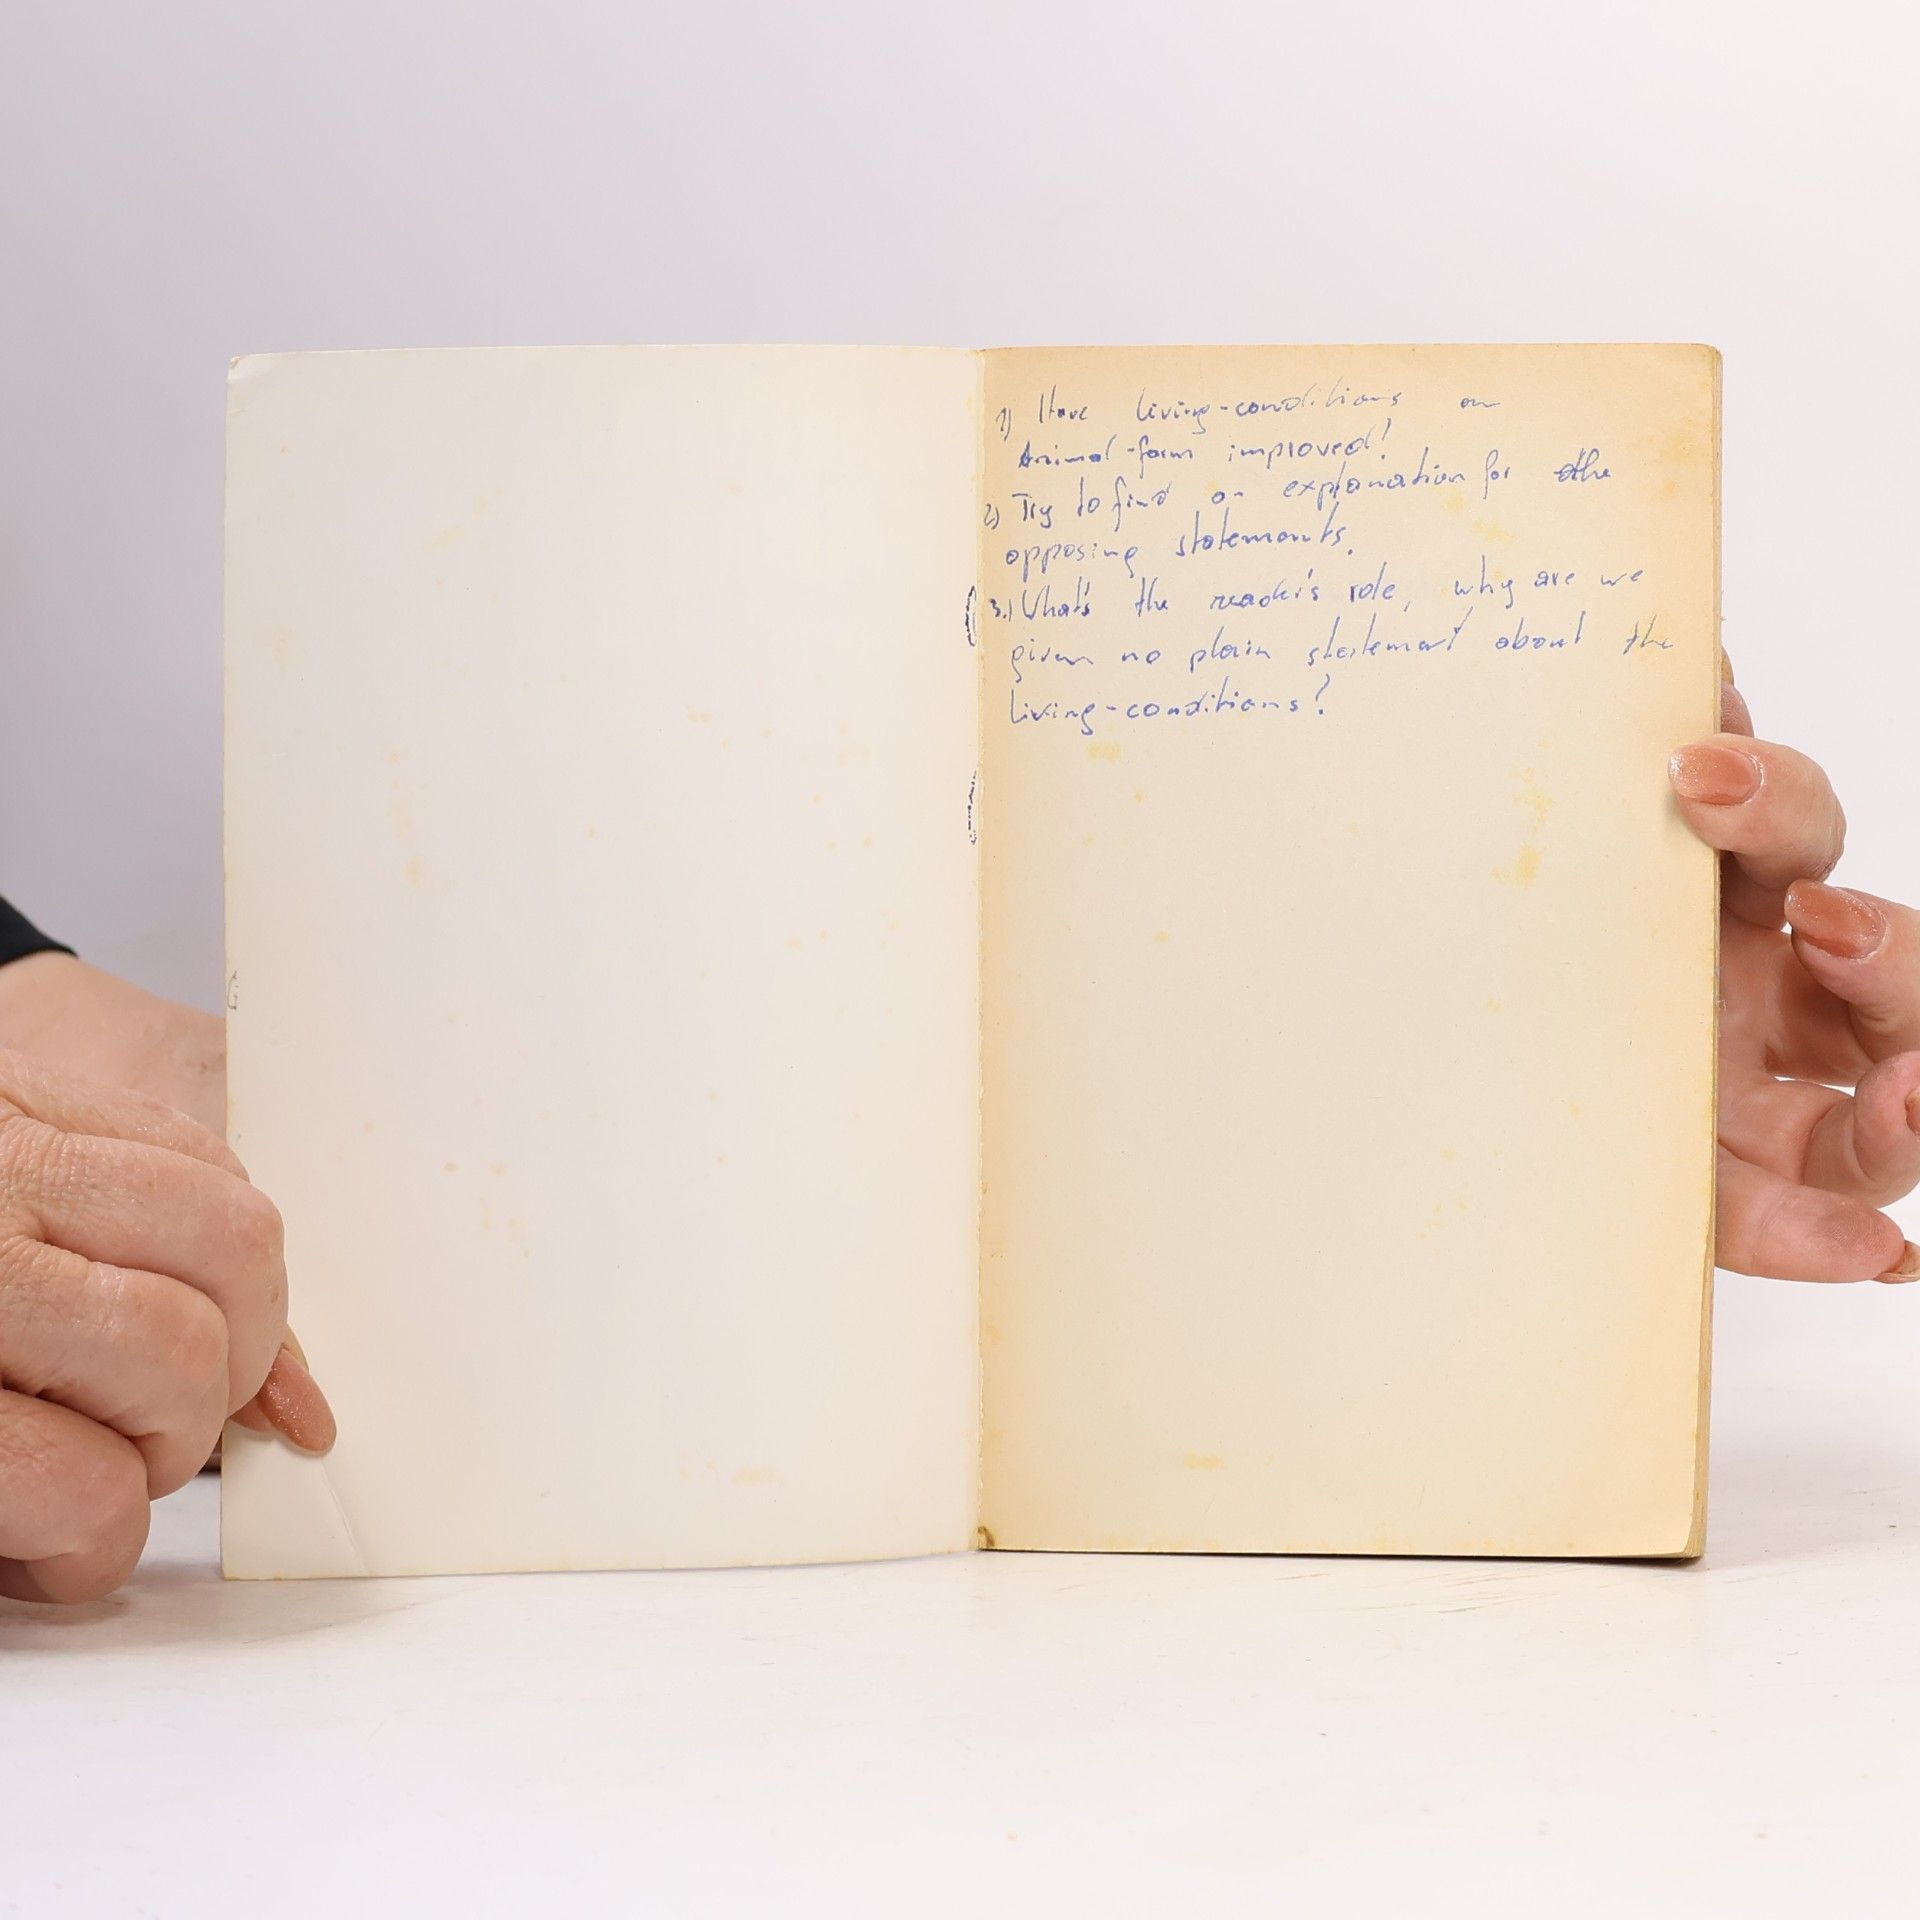 1) Have living-conditions on
Animal-farm improved?
2) Try to find an explanation for the
opposing statements.
3.) What's the reader's role, why are we
given no plain statement about the
living-conditions?